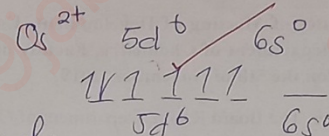 Os²⁺ 5d⁶ 6s⁰
1↿ 1 1 1 1 __
5d⁶ 6s⁰